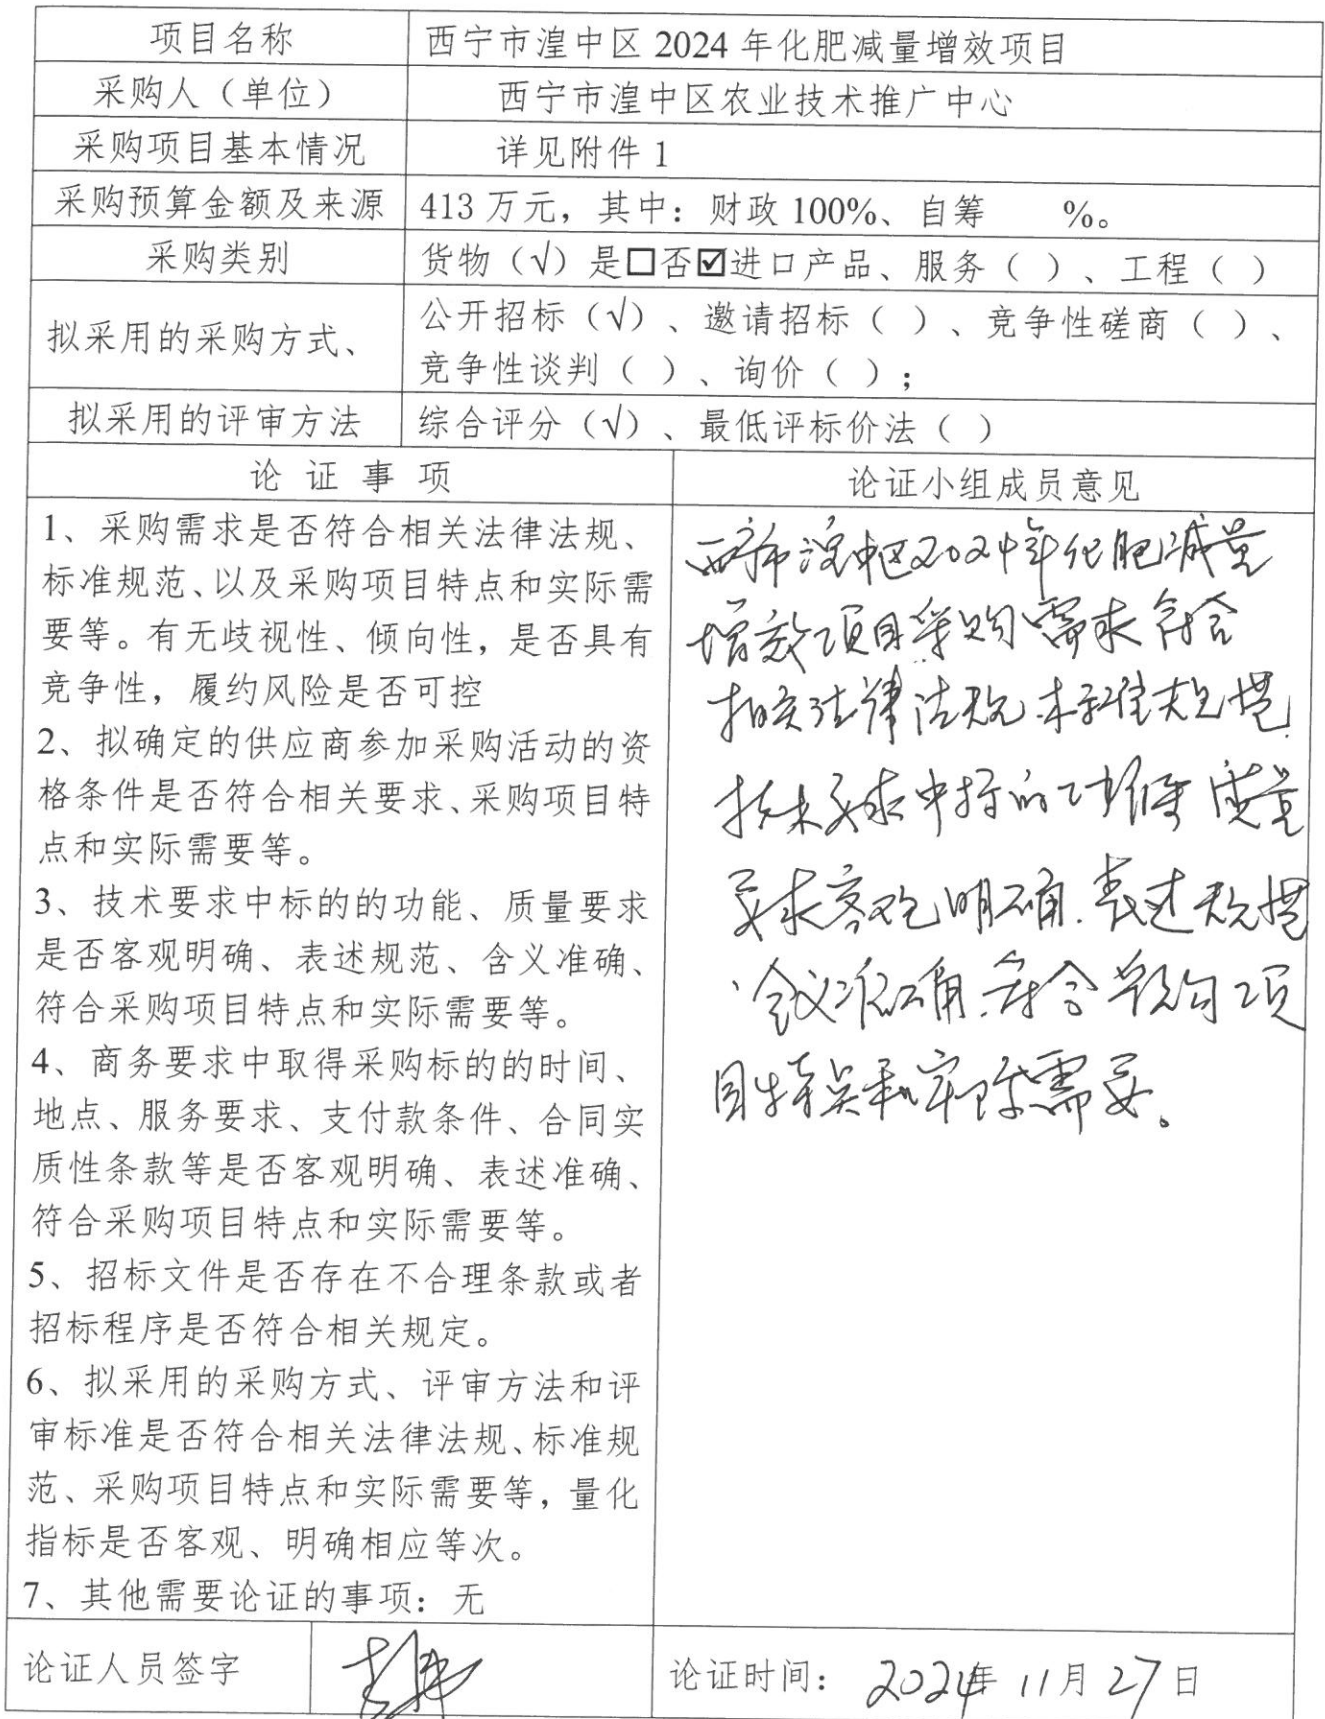 项目名称
西宁市湟中区 2024 年化肥减量增效项目
采购人（单位）
西宁市湟中区农业技术推广中心
采购项目基本情况
详见附件 1
采购预算金额及来源
413 万元，其中：财政 100%、自筹 %。
采购类别
货物（√）是☐否☑进口产品、服务（ ）、工程（ ）
拟采用的采购方式、
公开招标（√）、邀请招标（ ）、竞争性磋商（ ）、
竞争性谈判（ ）、询价（ ）；
拟采用的评审方法
综合评分（√）、最低评标价法（ ）
论 证 事 项
1、采购需求是否符合相关法律法规、
标准规范、以及采购项目特点和实际需
要等。有无歧视性、倾向性，是否具有
竞争性，履约风险是否可控
2、拟确定的供应商参加采购活动的资
格条件是否符合相关要求、采购项目特
点和实际需要等。
3、技术要求中标的的功能、质量要求
是否客观明确、表述规范、含义准确、
符合采购项目特点和实际需要等。
4、商务要求中取得采购标的的时间、
地点、服务要求、支付款条件、合同实
质性条款等是否客观明确、表述准确、
符合采购项目特点和实际需要等。
5、招标文件是否存在不合理条款或者
招标程序是否符合相关规定。
6、拟采用的采购方式、评审方法和评
审标准是否符合相关法律法规、标准规
范、采购项目特点和实际需要等，量化
指标是否客观、明确相应等次。
7、其他需要论证的事项：无
论证小组成员意见
西宁市湟中区2024年化肥减量
增效项目采购需求符合
相关法律法规、标准规范.
技术要求中标的功能 质量
要求客观明确.表述规范
、含义准确.符合采购项
目特点和实际需要。
论证人员签字
论证时间： 2024年 11月 27日